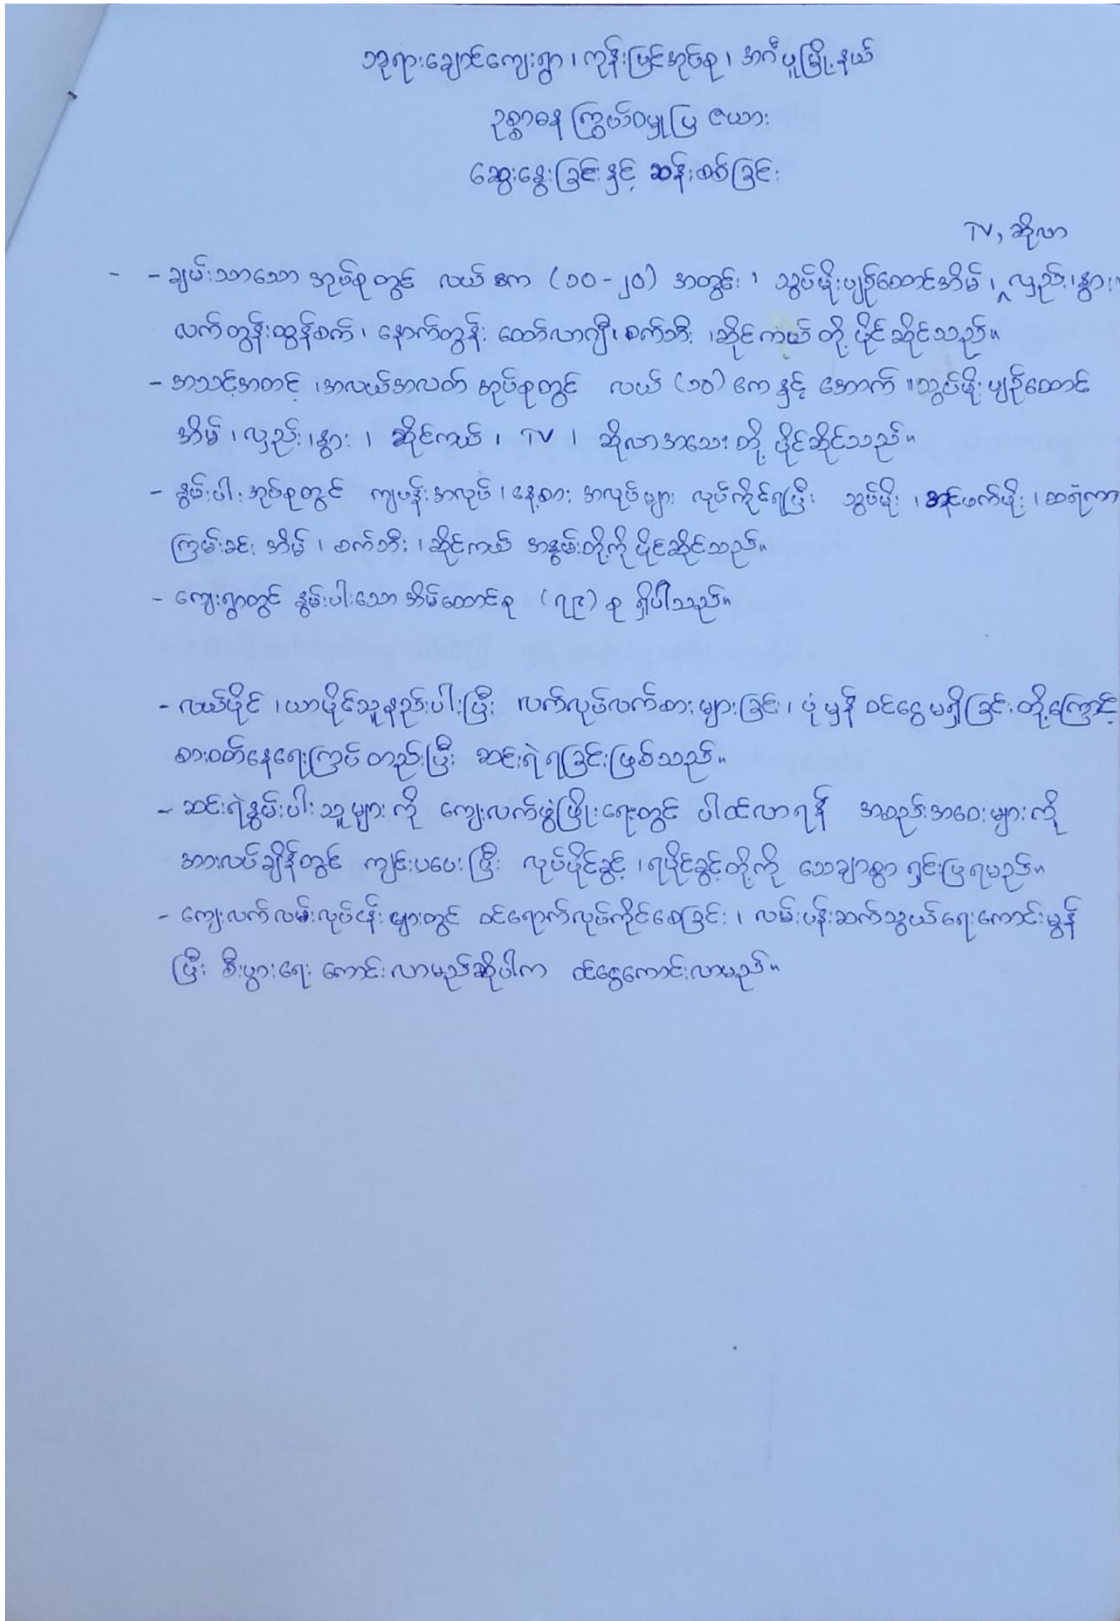 ဘုရားချောင်ကျေးရွာ ၊ ကုန်းမြင့်အုပ်စု ၊ အင်္ဂပူမြို့နယ်
ဥစ္စာဓန ကြွယ်ဝမှုပြ ဇယား
ဆွေးနွေးခြင်းနှင့် ဆန်းစစ်ခြင်း
TV, ဆိုလာ
- - ချမ်းသာသော အုပ်စုတွင် လယ် ဧက (၁၀-၂၀) အတွင်း ၊ သွပ်မိုးပျဉ်ထောင်အိမ် ၊ လှည်း ၊ နွား ၊
လက်တွန်းထွန်စက် ၊ နောက်တွန်း ထော်လာဂျီ ၊ စက်ဘီး ၊ ဆိုင်ကယ် တို့ ပိုင်ဆိုင်သည်။
- အသင့်အတင့် ၊ အလယ်အလတ် အုပ်စုတွင် လယ် (၁၀) ဧက နှင့် အောက် ၊ သွပ်မိုး ပျဉ်ထောင်
အိမ် ၊ လှည်း ၊ နွား ၊ ဆိုင်ကယ် ၊ TV ၊ ဆိုလာအသေး တို့ ပိုင်ဆိုင်သည်။
- နွမ်းပါး အုပ်စုတွင် ကျပန်းအလုပ် ၊ နေ့စား အလုပ်များ လုပ်ကိုင်ရပြီး သွပ်မိုး ၊ အင်ဖက်မိုး ၊ ထရံကာ
ကြမ်းခင်း အိမ် ၊ စက်ဘီး ၊ ဆိုင်ကယ် အနွမ်းတို့ကို ပိုင်ဆိုင်သည်။
- ကျေးရွာတွင် နွမ်းပါးသော အိမ်ထောင်စု (၇၉) စု ရှိပါသည်။
- လယ်ပိုင် ၊ ယာပိုင်သူနည်းပါးပြီး လက်လုပ်လက်စားများခြင်း ၊ ပုံမှန် ဝင်ငွေမရှိခြင်းတို့ကြောင့်
စားဝတ်နေရေးကြပ်တည်းပြီး ဆင်းရဲရခြင်းဖြစ်သည်။
- ဆင်းရဲနွမ်းပါးသူများကို ကျေးလက်ဖွံ့ဖြိုးရေးတွင် ပါဝင်လာရန် အစည်းအဝေးများကို
အားလပ်ချိန်တွင် ကျင်းပပေးပြီး လုပ်ပိုင်ခွင့် ၊ ရပိုင်ခွင့်တို့ကို သေချာစွာ ရှင်းပြရမည်။
- ကျေးလက်လမ်းလုပ်ငန်းများတွင် ဝင်ရောက်လုပ်ကိုင်စေခြင်း ၊ လမ်းပန်းဆက်သွယ်ရေးကောင်းမွန်
ပြီး စီးပွားရေး ကောင်းလာမည်ဆိုပါက ဝင်ငွေကောင်းလာမည်။